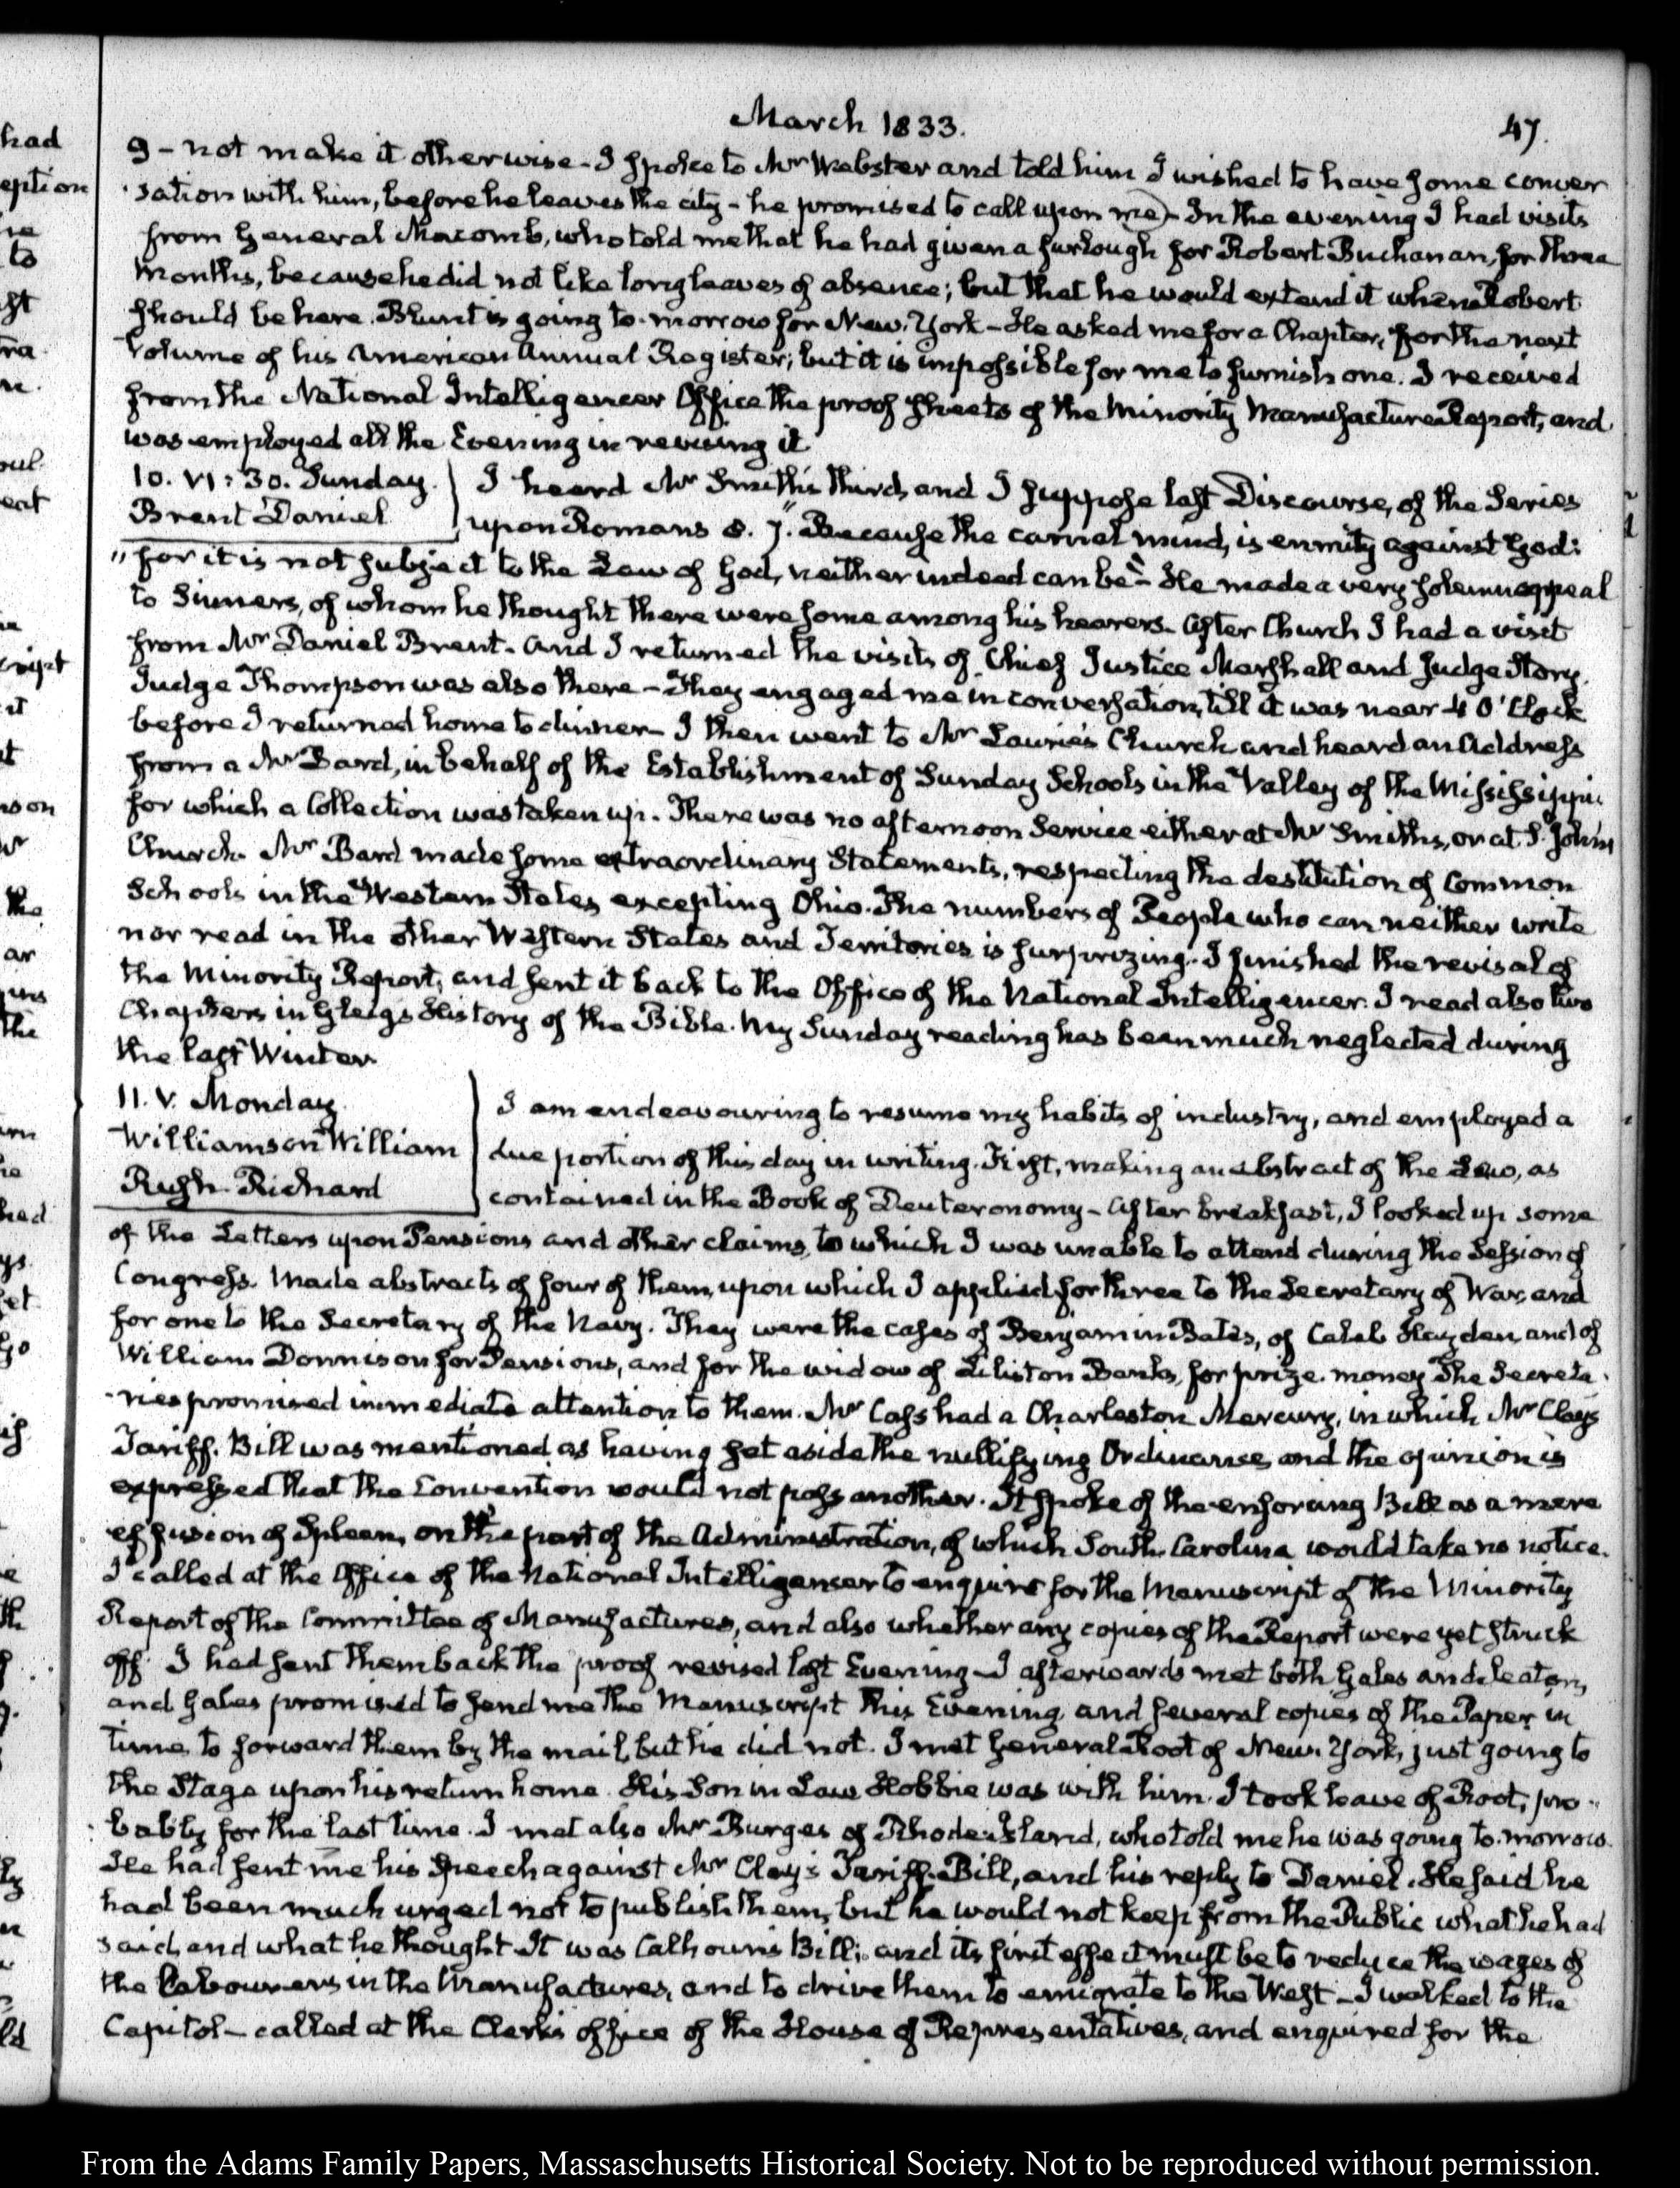 March 1833.
47.
9 - not make it otherwise - I spoke to Mr Webster and told him I wished to have some conver
sation with him, before he leaves the city - he promised to call upon me) - In the evening I had visits
from General Macomb, who told me that he had given a furlough for Robert Buchanan, for three
Months, because he did not like long leaves of absence; but that he would extend it when Robert
should be here. Blunt is going to-morrow for New-York - He asked me for a Chapter, for the next
Volume of his American Annual Register; but it is impossible for me to furnish one. I received
from the National Intelligencer Office the proof sheets of the Minority Manufacture Report, and
was employed all the Evening in revising it
10. VI: 30. Sunday.
Brent Daniel
I heard Mr Smith's third, and I suppose last Discourse, of the Series
upon Romans 8. 7. "Because the carnal mind, is enmity against God:
"for it is not subject to the Law of God, neither indeed can be" - He made a very solemn appeal
to Sinners, of whom he thought there were some among his hearers. After Church I had a visit
from Mr Daniel Brent. And I returned the visits of Chief Justice Marshall and Judge Story.
Judge Thompson was also there - They engaged me in conversation, till it was near 4 O'Clock
before I returned home to dinner - I then went to Mr Laurie's Church and heard an Address
from a Mr Bard, in behalf of the Establishment of Sunday Schools in the Valley of the Mississippi
for which a Collection was taken up. There was no afternoon Service either at Mr Smith's, or at St. John's
Church. Mr Bard made some extraordinary Statements, respecting the destitution of Common
Schools in the Western States excepting Ohio. The numbers of People who can neither write
nor read in the other Western States and Territories is surprizing. I finished the revisal of
the Minority Report, and sent it back to the Office of the National Intelligencer. I read also two
Chapters in Gleig's History of the Bible. My Sunday reading has been much neglected during
the last Winter.
11. V. Monday.
Williamson William
Rush Richard
I am endeavouring to resume my habits of industry, and employed a
due portion of this day in writing. First, making an abstract of the Law, as
contained in the Book of Deuteronomy - After breakfast, I looked up some
of the Letters upon Pensions and other claims, to which I was unable to attend during the Session of
Congress. Made abstracts of four of them, upon which I applied for three to the Secretary of War, and
for one to the Secretary of the Navy. They were the cases of Benjamin Bates, of Caleb Hayden, and of
William Donnison for Pensions, and for the widow of Liliston Banks, for prize-money. The Secreta
ries promised immediate attention to them. Mr Cass had a Charleston Mercury, in which Mr Clay's
Tariff-Bill was mentioned as having set aside the nullifying Ordinance, and the opinion is
expressed that the Convention would not pass another. It spoke of the enforcing Bill as a mere
effusion of Spleen, on the part of the Administration, of which South-Carolina would take no notice.
I called at the Office of the National Intelligencer to enquire for the Manuscript of the Minority
Report of the Committee of Manufactures, and also whether any copies of the Report were yet struck
off. I had sent them back the proof revised last Evening - I afterwards met both Gales and Seaton,
and Gales promised to send me the Manuscript this Evening, and several copies of the Paper in
time to forward them by the mail, but he did not. I met General Root of New-York, just going to
the Stage upon his return home. His Son in Law Hobbie was with him. I took leave of Root, pro
bably for the last time. I met also Mr Burges of Rhode-Island, who told me he was going to-morrow.
He had sent me his Speech against Mr Clay's Tariff-Bill, and his reply to Daniel. He said he
had been much urged not to publish them, but he would not keep from the Public what he had
said, and what he thought. It was Calhoun's Bill; and its first effect must be to reduce the wages of
the Labourers in the Manufactures, and to drive them to emigrate to the West - I walked to the
Capitol - called at the Clerk's office of the House of Representatives, and enquired for the
From the Adams Family Papers, Massachusetts Historical Society. Not to be reproduced without permission.